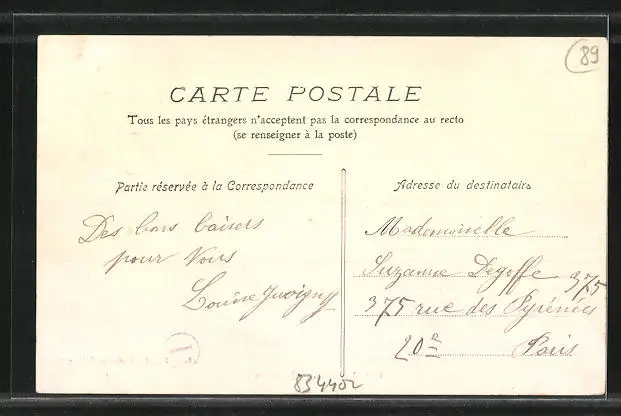 89
CARTE POSTALE
Tous les pays étrangers n'acceptent pas la correspondance au recto
(se renseigner à la poste)
Partie réservée à la Correspondance
Des bons baisers
pour Vous
Louise Juvigny
Adresse du destinataire
Mademoiselle
Suzanne Degoffe 375
375 rue des Pyrénées
20e Paris
834402